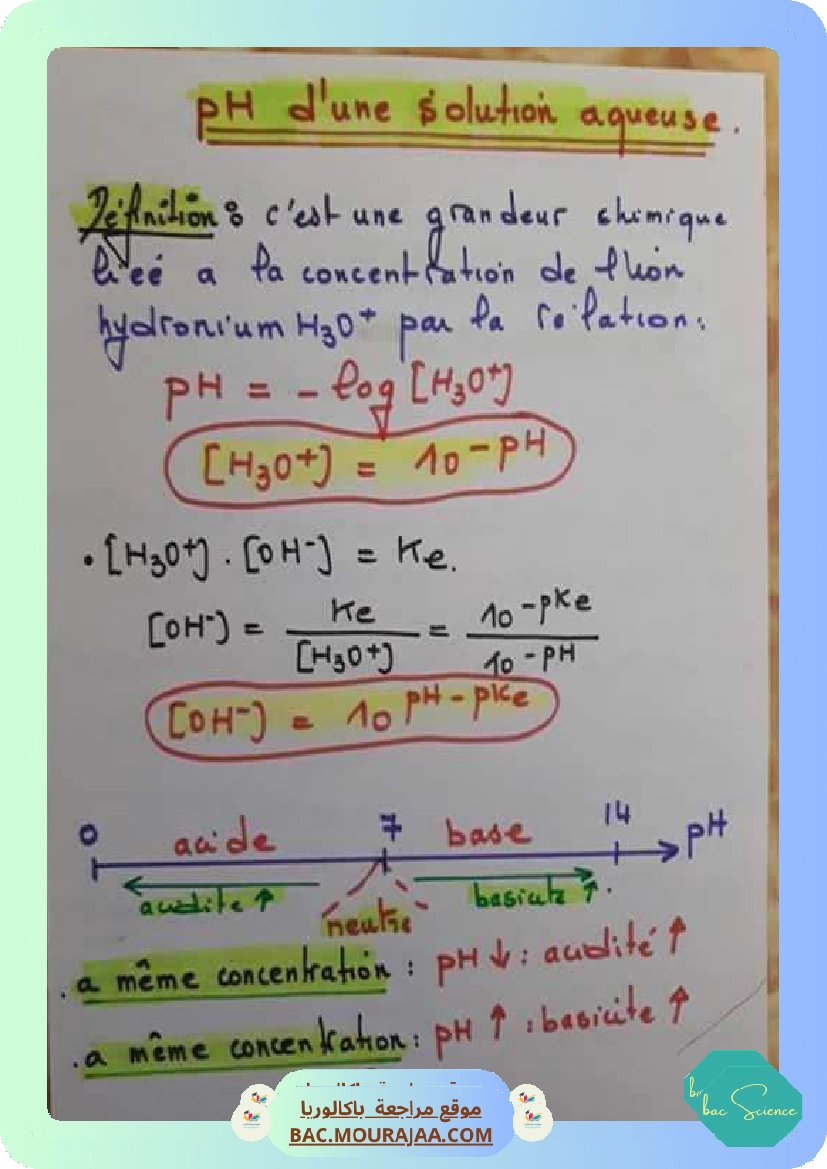 pH d'une solution aqueuse.
Définition : c'est une grandeur chimique
lieé a la concentration de l'ion
hydronium H₃O⁺ par la rélation :
pH = - log [H₃O⁺]
[H₃O⁺] = 10^-pH
• [H₃O⁺] . [OH⁻] = Ke.
[OH⁻] = Ke / [H₃O⁺] = 10^-pKe / 10^-pH
[OH⁻] = 10^pH - pKe
0 acide 7 base 14 pH
acidité ↑ neutre basicité ↑.
. a même concentration : pH ↓ : acidité ↑
. a même concentration : pH ↑ : basicite ↑
موقع مراجعة باكالوريا
BAC.MOURAJAA.COM
bac Science